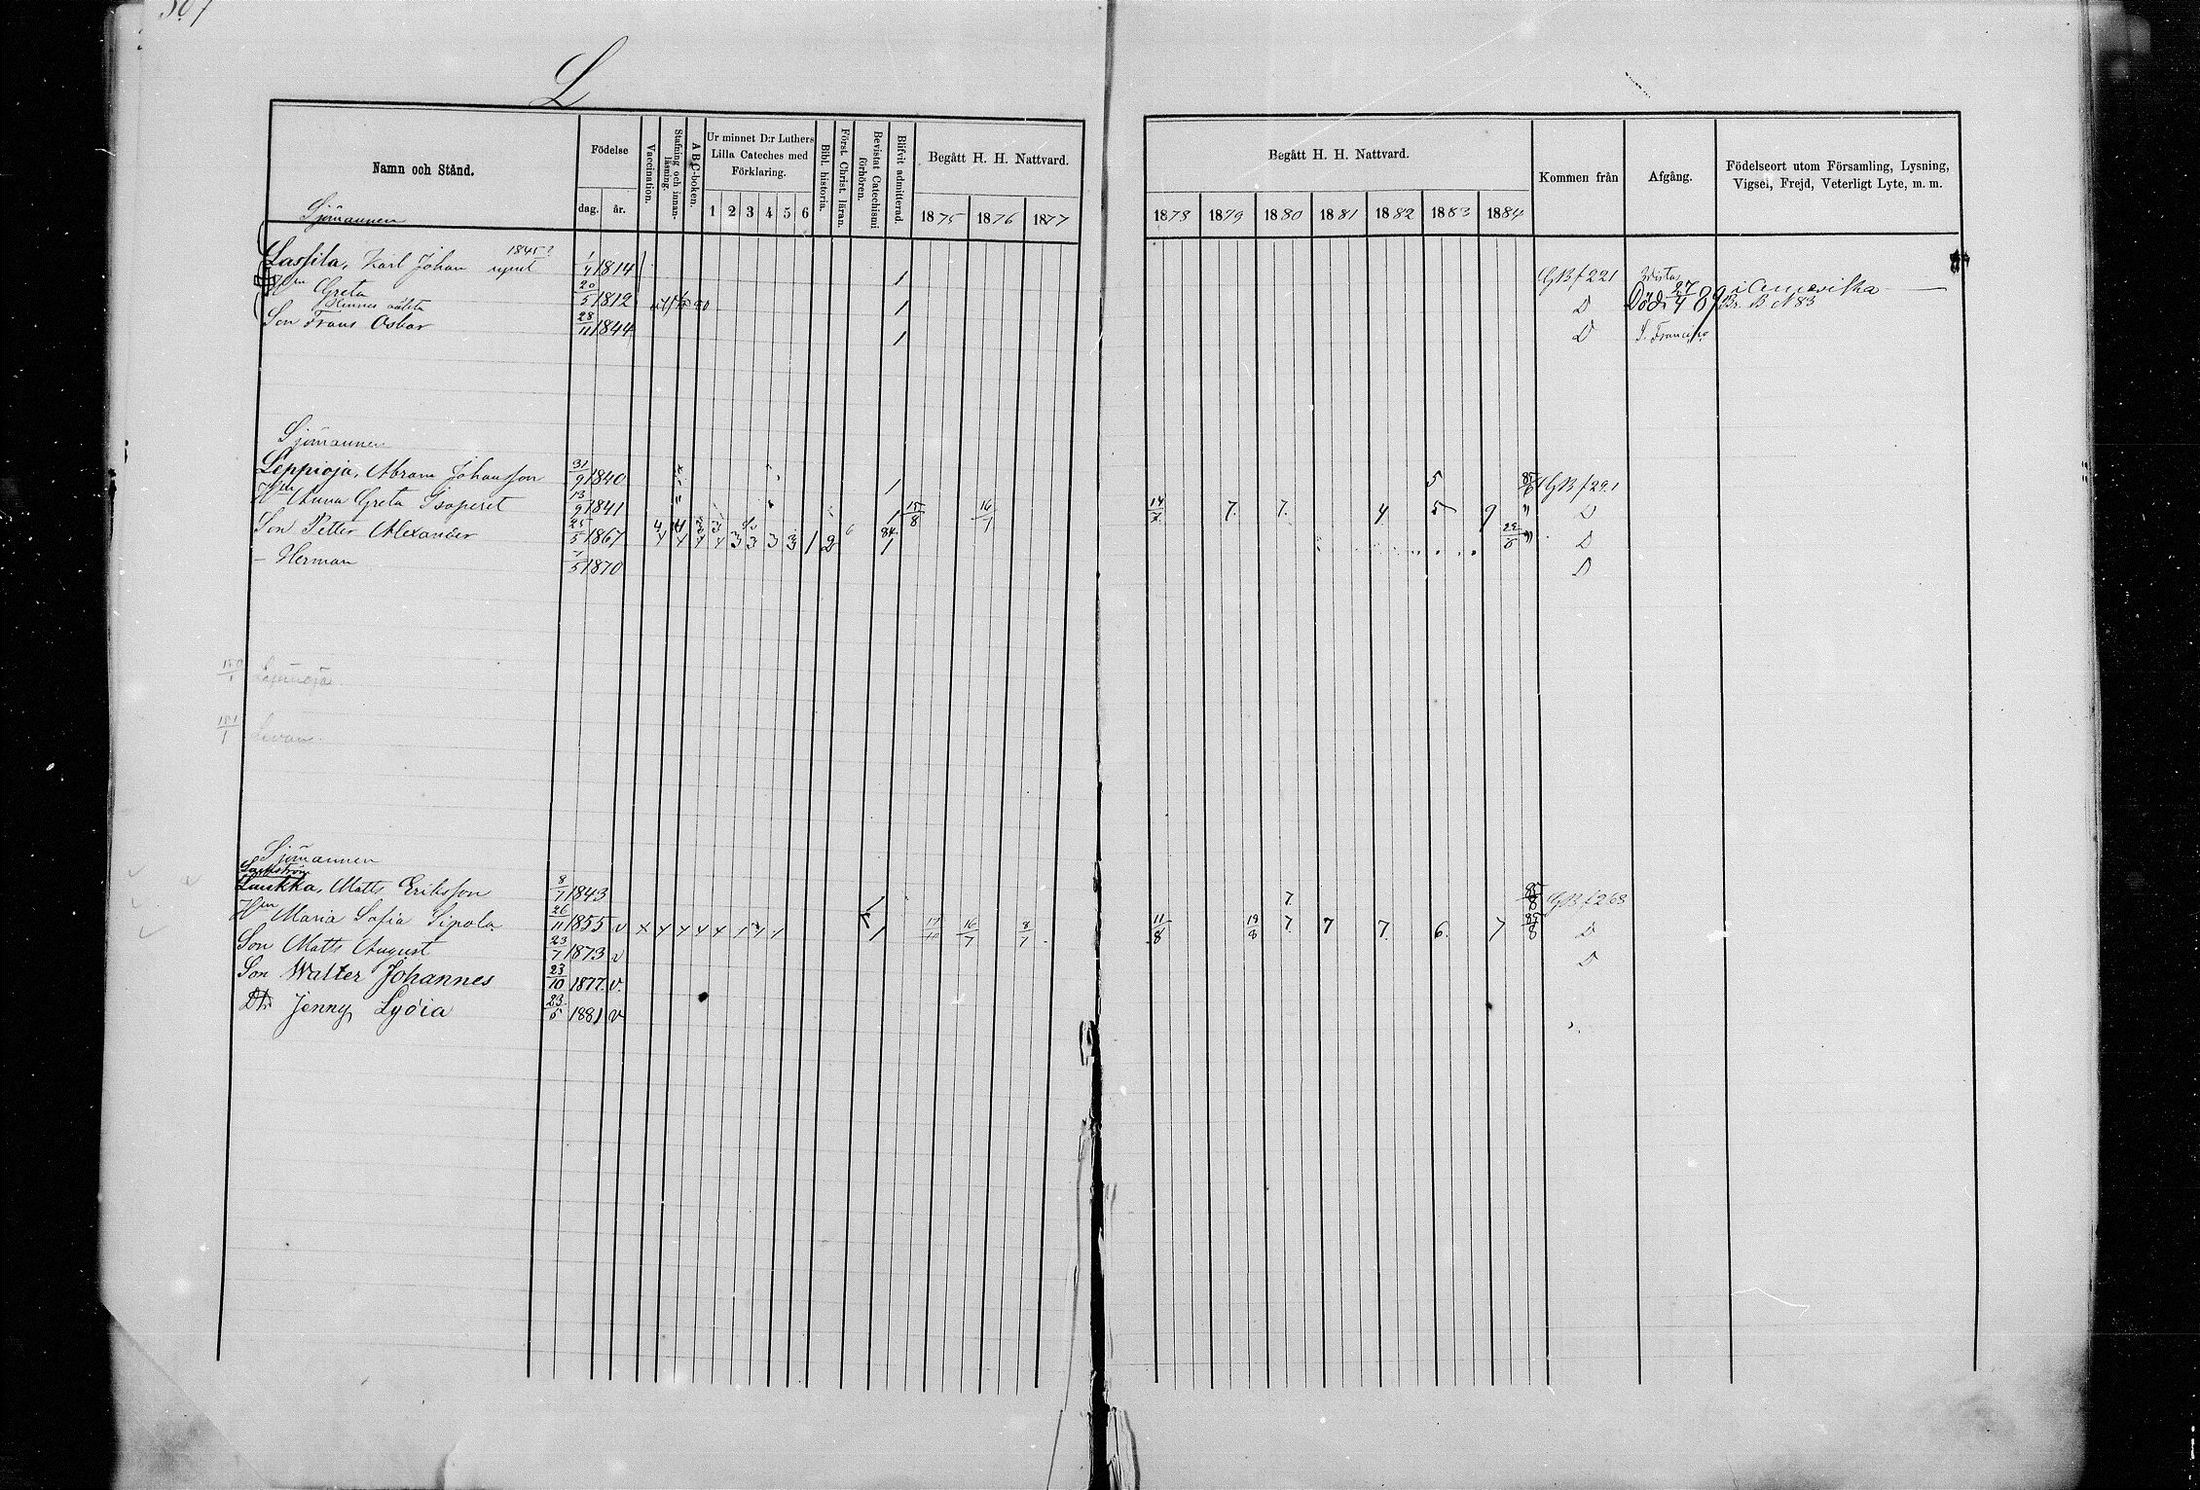 L
Namn och Stånd.
Födelse
dag.
år.
Vaccination.
Stafning och innanläsning.
A B C-boken.
Ur minnet D:r Luthers Lilla Cateches med Förklaring.
1 2 3 4 5 6
Bibl. historia.
Först. Christ. läran.
Bevistat Catechismi förhören.
Blifvit admitterad.
Begått H. H. Nattvard.
1875 1876 1877
Begått H. H. Nattvard.
1878 1879 1880 1881 1882 1883 1884
Kommen från
Afgång.
Födelseort utom Församling, Lysning, Vigsel, Frejd, Veterligt Lyte, m. m.
Sjömannen
1845?
Lassila, Karl Johan rymt 1/4 1814 1 GB f 221 Vistas i Amerika
Hn Greta 20/5 1812 1 D Död 27/4 89 Br. B N 83
Son Frans Oskar 28/11 1844 1 D S. Francisco
Sjömannen
Leppioja, Abram Johansson 31/9 1840 1 5 85/6 GB f 291
Hn Anna Greta Isoperet 13/9 1841 1 15/8 16/7 14/7 7. 7. 4 5 9 " D
Son Petter Alexander 25/5 1867 84/1 D
– Herman 7/5 1870 D
Sjömannen
Luukka, Matts Eriksson 8/7 1843 1 7 85/8 GB f 268
Hn Maria Sofia Sipola 26/11 1855 v 1 16/7 8/7 11/8 19/8 7. 7 7. 6. 7 85/8 D
Son Matts August 23/7 1873 v D
Son Walter Johannes 23/10 1877. v.
Dtr Jenny Lydia 23/5 1881 v